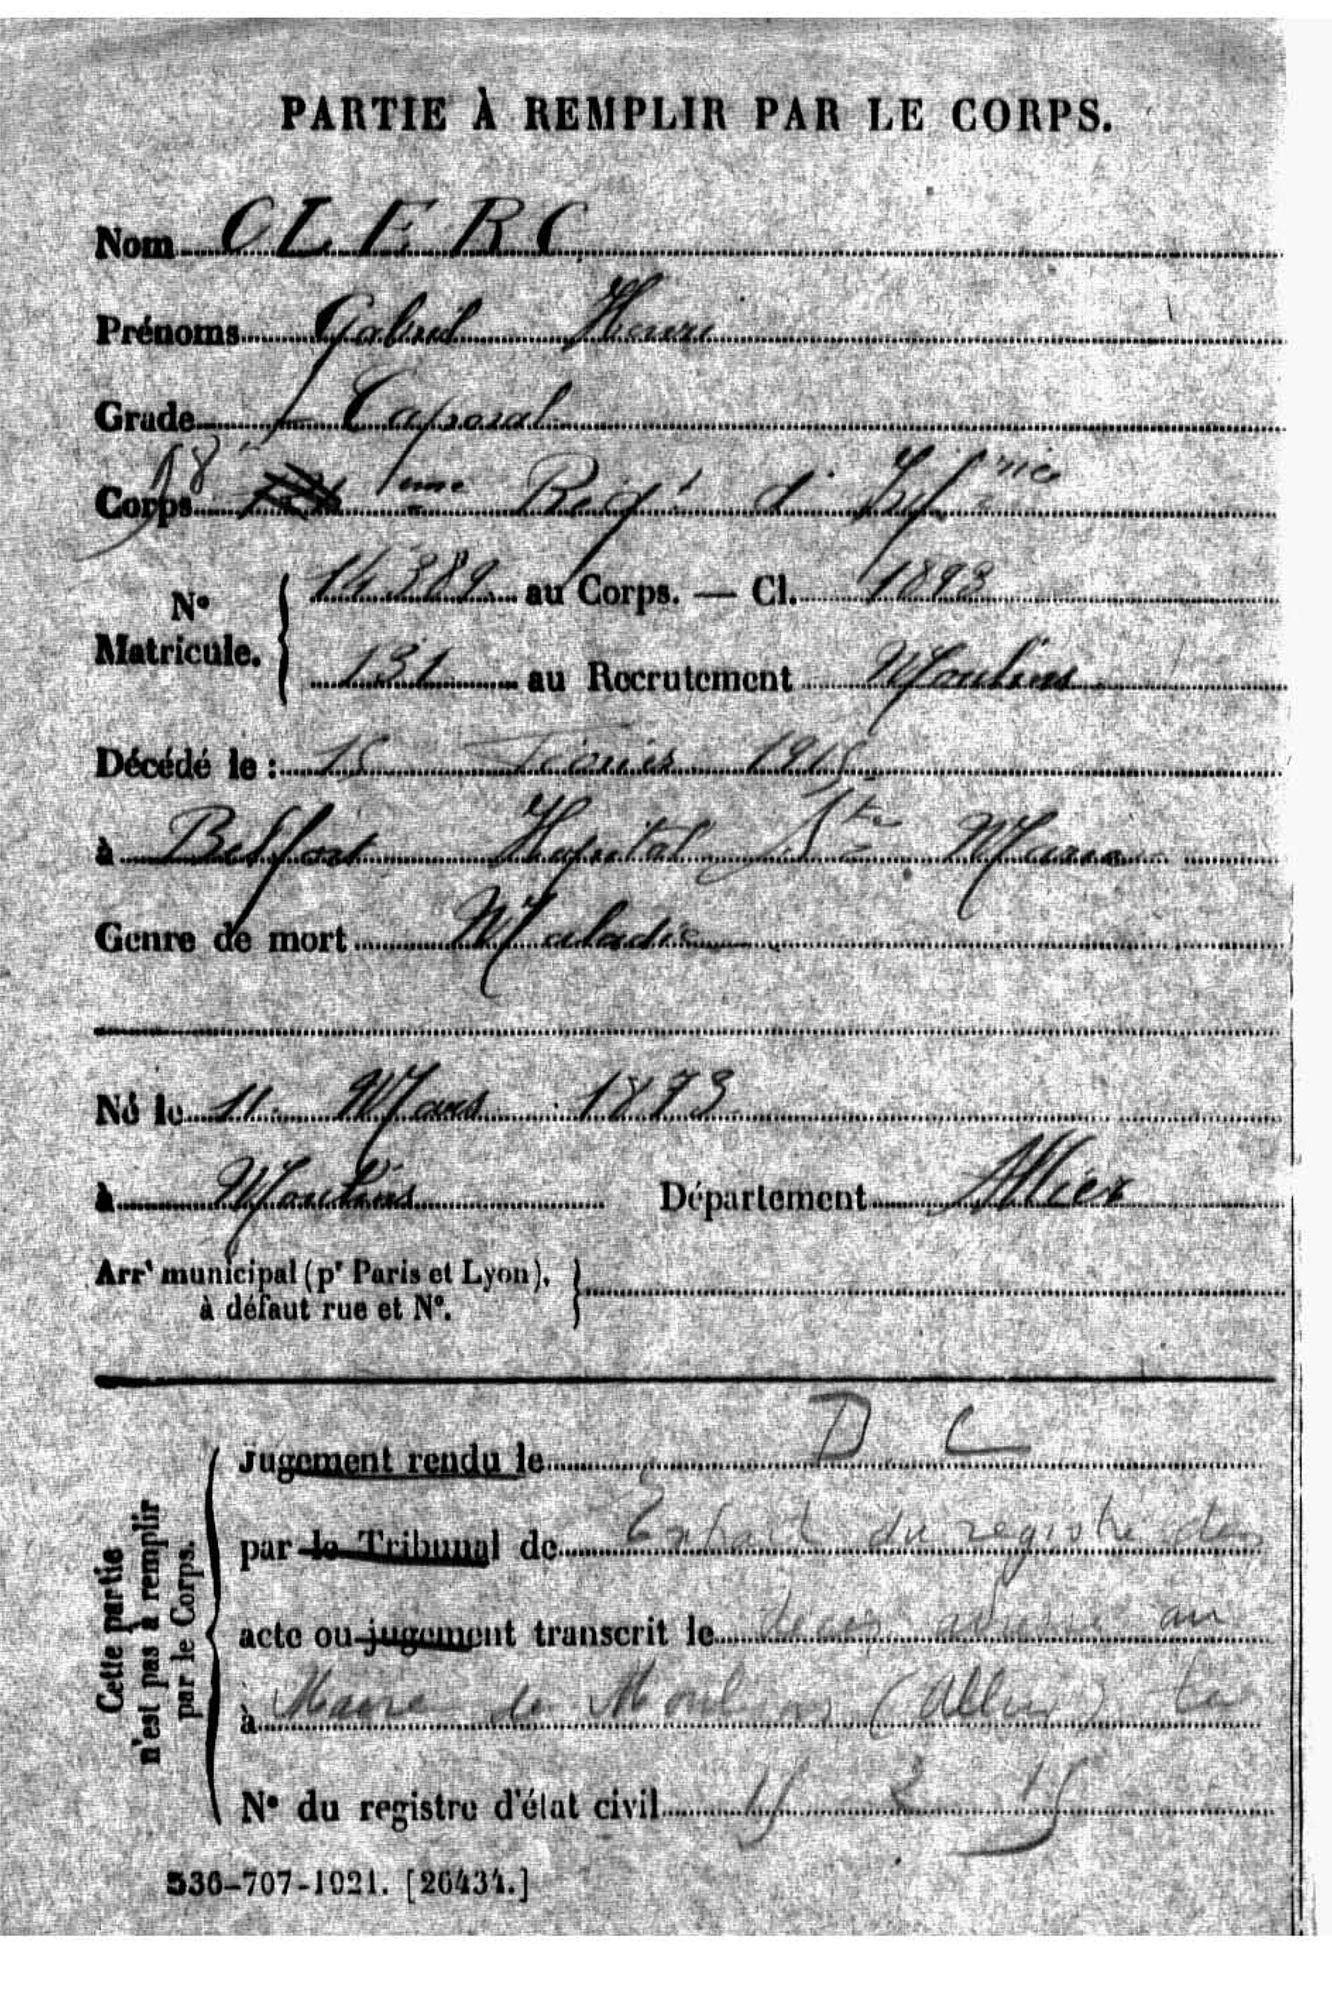 PARTIE À REMPLIR PAR LE CORPS.
Nom CLERC
Prénoms Gabriel Henri
Grade Caporal
Corps 98 eme Reg.t d' Inf.rie
N° Matricule. 14389 au Corps. — Cl. 1893
131 au Recrutement Moulins
Décédé le : 15 Février 1915
à Belfort Hopital Ste Marie
Genre de mort Maladie
Né le 11 Mars 1873
à Moulins Département Allier
Arrt municipal (pr Paris et Lyon), à défaut rue et N°.
Cette partie n'est pas à remplir par le Corps.
D C
Jugement rendu le
par le Tribunal de Extrait du registre des
acte ou jugement transcrit le deces adressé au
à Maire de Moulins (Allier) le
N° du registre d'état civil 15 2 15
536-707-1921. [26434.]